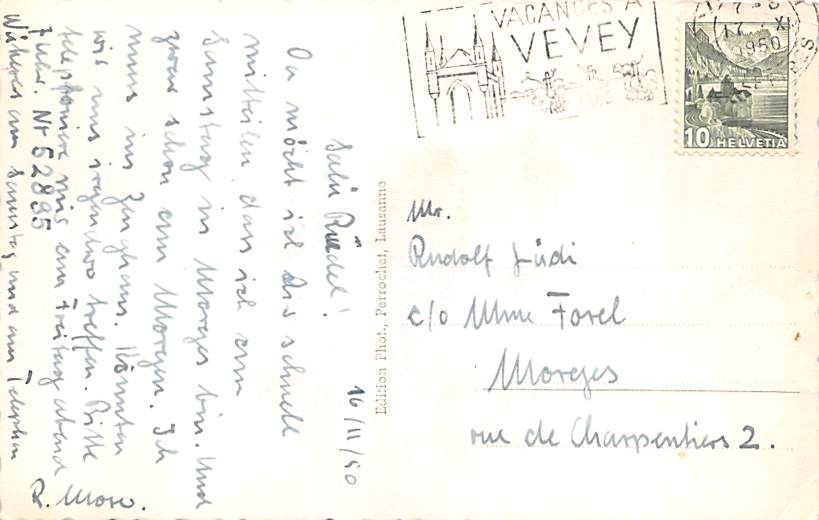 VACANCES A
VEVEY
17
X
1950
10 HELVETIA
16/11/50
Salü Rüedel!
Da möcht ich Dir schnell
mitteilen, dass ich am
Samstag in Morges bin. Und
zwar schon am Morgen. Ich
muss ins Zeughaus. Könnten
wir uns irgendwo treffen. Bitte
telephoniere mir am Freitag abend
Nr 52895
am Samstag und am Telephon
R. Moser.
Edition Phot., Perrochet, Lausanne
Mr.
Rudolf Lüdi
c/o Mme Forel
Morges
rue de Charpentiers 2.